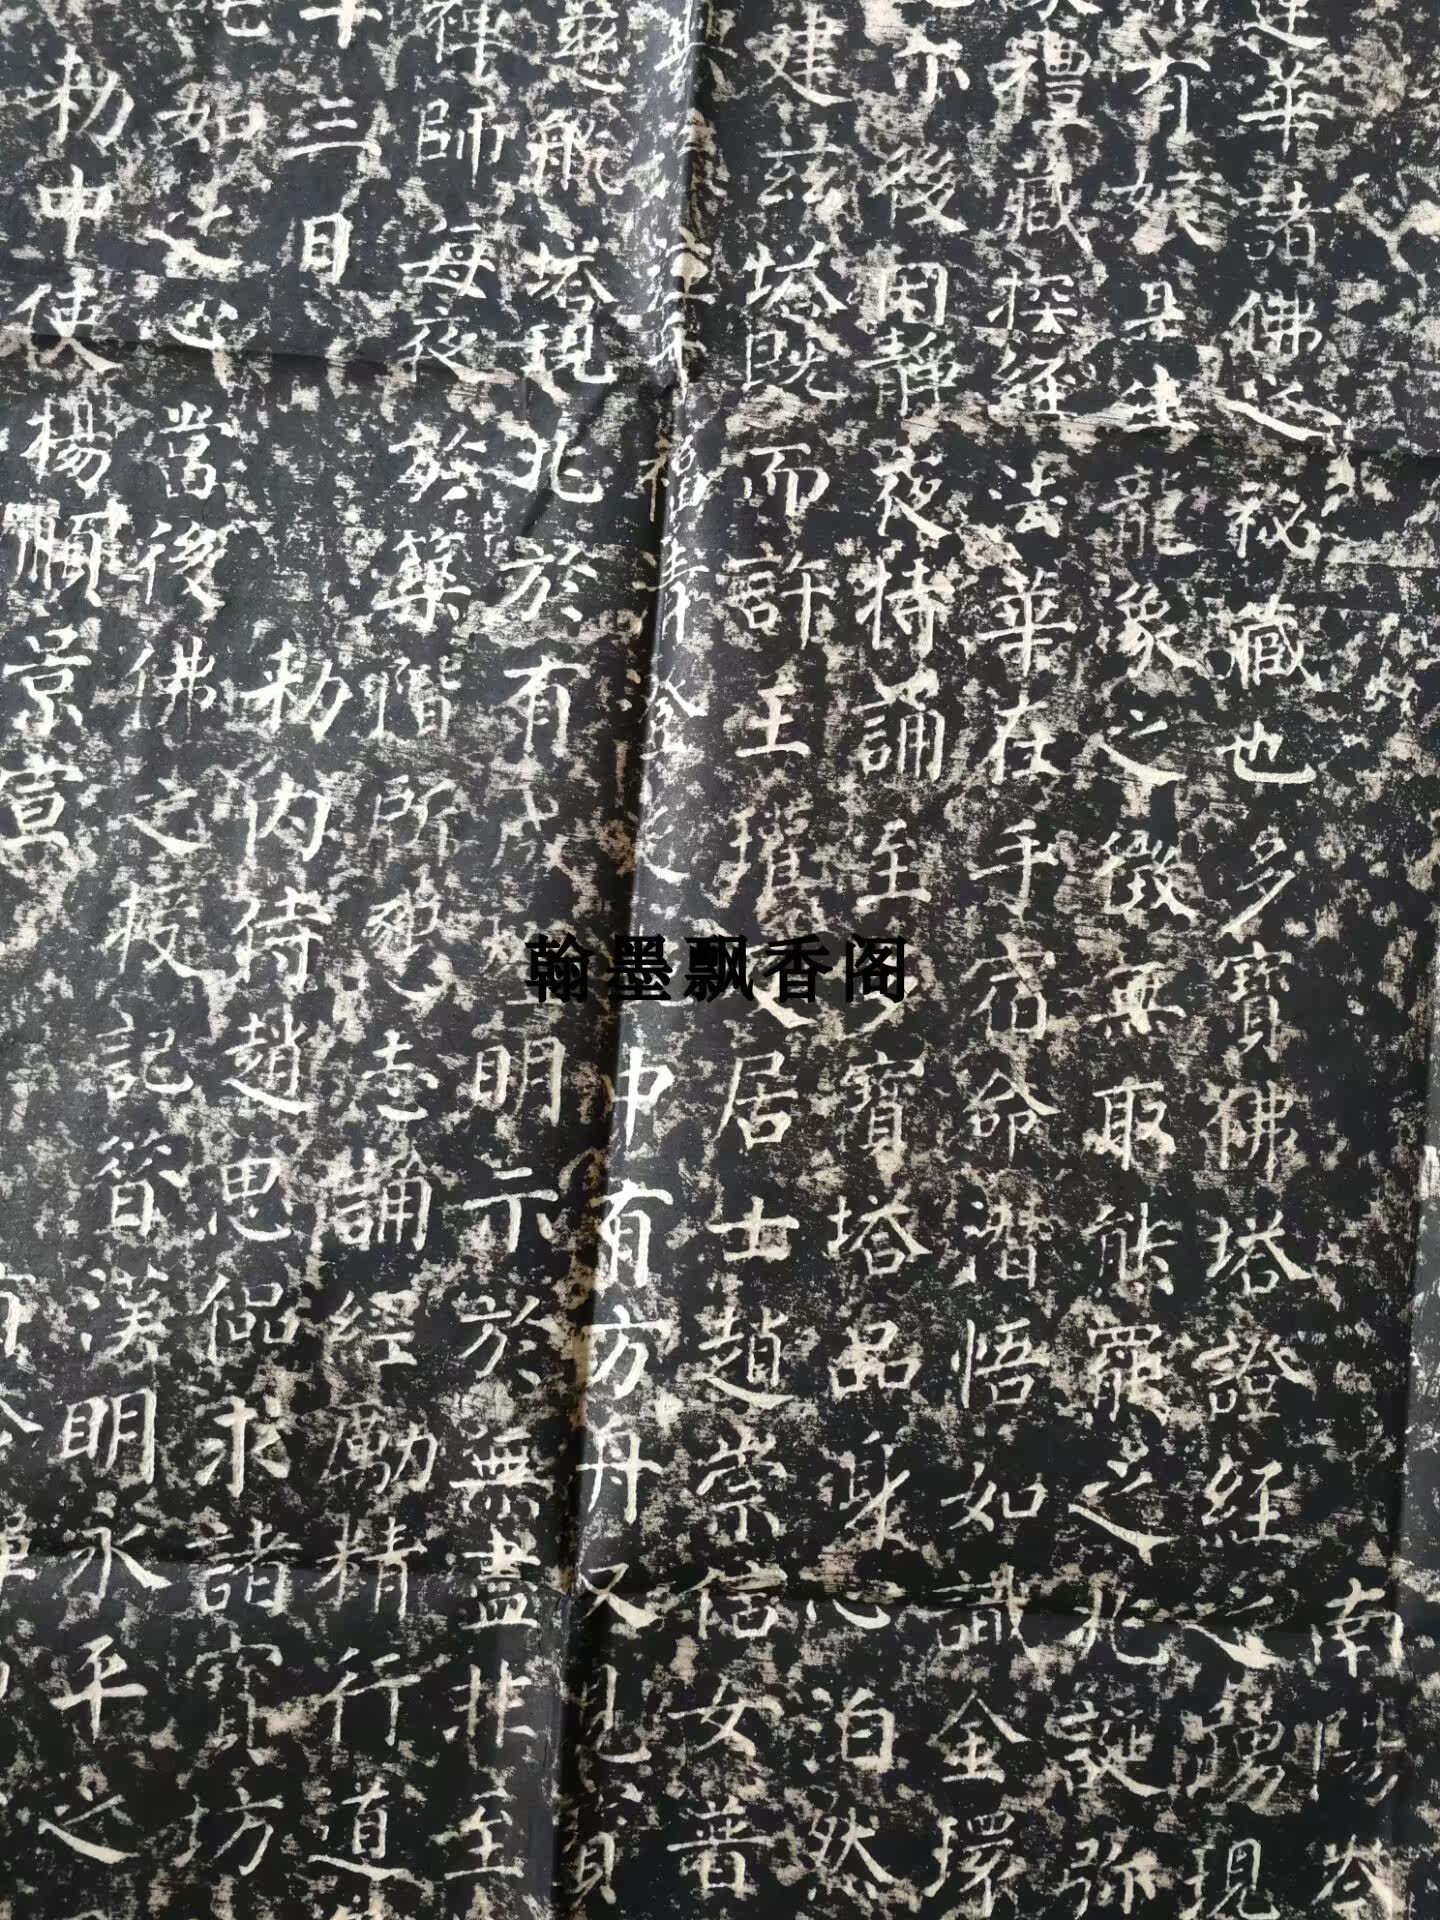 南陽岑
蓮華諸佛之秘藏也多寶佛塔證經之踴現
有娠是生龍象之徵無取熊羆之兆誕弥
禮藏探經法華在手宿命潜悟如識金環
亦後因靜夜持誦至多寶塔品身心泊然
建茲塔既而許王瓘及居士趙崇信女普
中有方舟又見寶
慈航塔現兆於有為燈明示於無盡非至
禅師每夜於築階所懇志誦經勵精行道
三日勅内侍趙思侶求諸寶坊
如之心當後佛之授記昔漢明永平之
勅中使楊順景宣
翰墨飘香阁